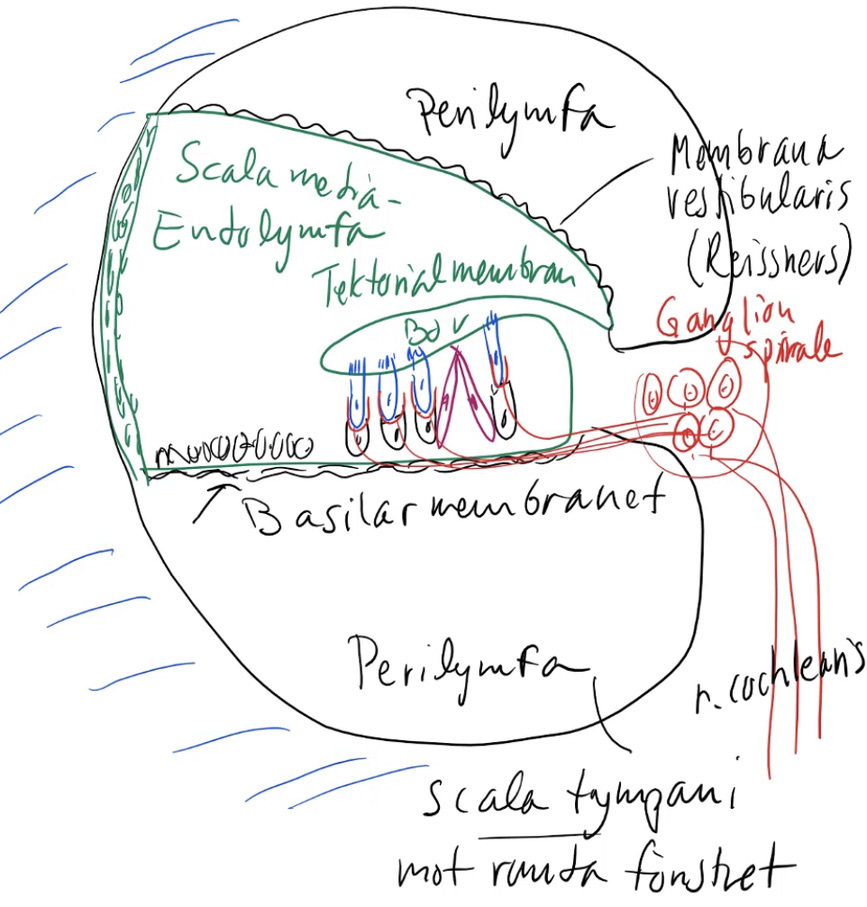 Perilymfa
Membrana
vestibularis
(Reissners)
Scala media-
Endolymfa
Tektorialmembran
Ganglion
spirale
Basilarmembranet
Perilymfa
n. cochlearis
scala tympani
mot runda fönstret